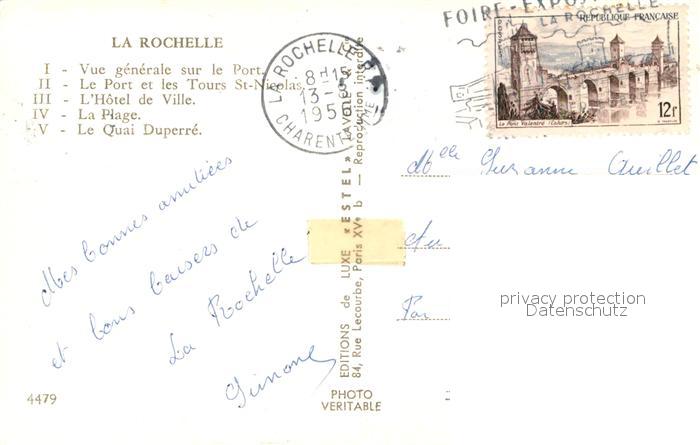 LA ROCHELLE
I - Vue générale sur le Port.
II - Le Port et les Tours St-Nicolas
III - L'Hôtel de Ville.
IV - La Plage.
V - Le Quai Duperré.
Mes bonnes amitiées
et bons baisers de
La Rochelle
Simone
4479
LA ROCHELLE
8 H 15
13 -
195
CHARENTE
EDITIONS de LUXE "ESTEL" LAVELLE
84, Rue Lecourbe, Paris XVe b - Reproduction interdite
PHOTO
VERITABLE
FOIRE-EXPOS
LA ROCHELLE
REPUBLIQUE FRANÇAISE
POSTES
Le Pont Valentré (Cahors)
12f
Melle Suzanne
Au
Par
privacy protection
Datenschutz